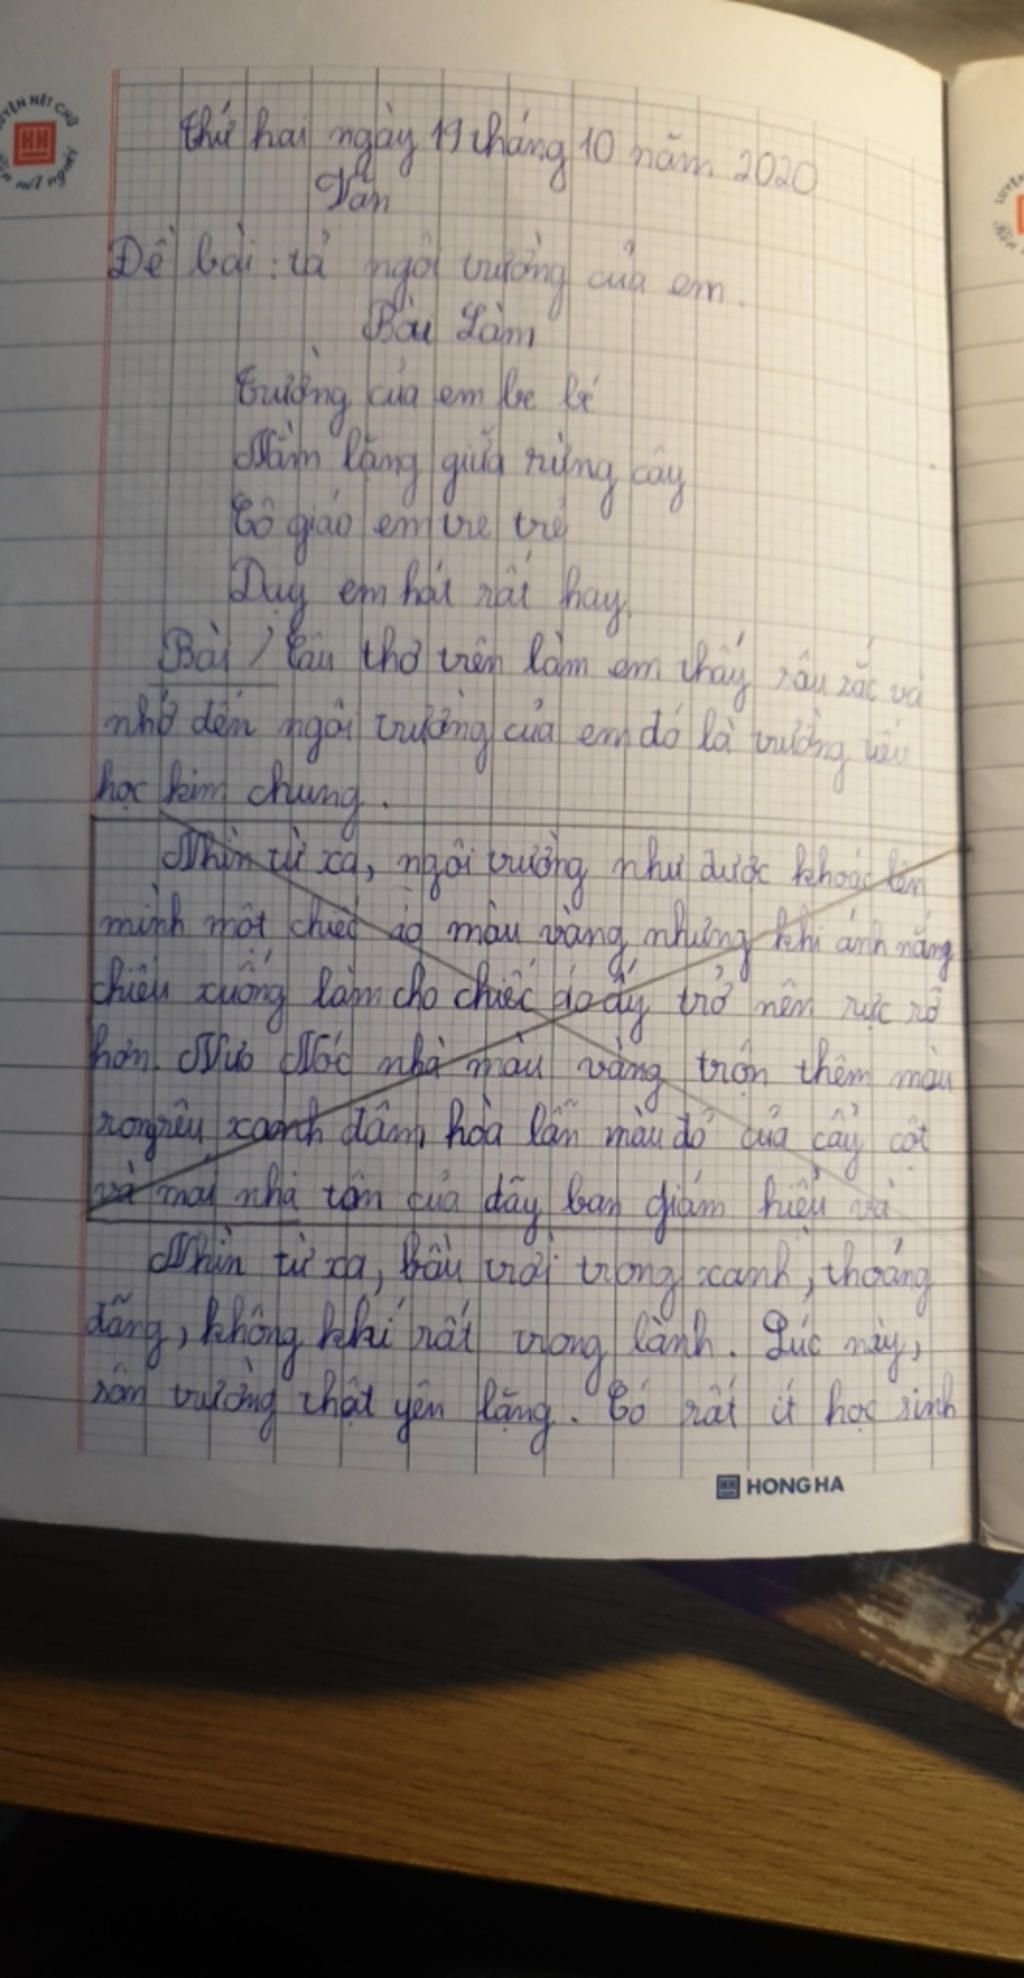 LUYỆN NÉT CHỮ
Rèn nết người
Thứ hai ngày 19 tháng 10 năm 2020
Văn
Đề bài: tả ngôi trường của em.
Bài Làm
Trường của em be bé
Nằm lặng giữa rừng cây
Cô giáo em tre trẻ
Dạy em hát rất hay.
Bài) Câu thơ trên làm em thấy sâu sắc và
nhớ đến ngôi trường của em đó là trường tiểu
học kim chung.
Nhìn từ xa, ngôi trường như được khoác lên
mình một chiếc áo màu vàng nhưng khi ánh nắng
chiếu xuống làm cho chiếc áo ấy trở nên rực rỡ
hơn. Nóc nhà màu vàng trộn thêm màu
rong rêu xanh đậm, hòa lẫn màu đỏ của cây cột
và mái nhà tôn của dãy ban giám hiệu và
Nhìn từ xa, bầu trời trong xanh, thoáng
đãng, không khí rất trong lành. Lúc này,
sân trường thật yên lặng. Có rất ít học sinh
HONG HA